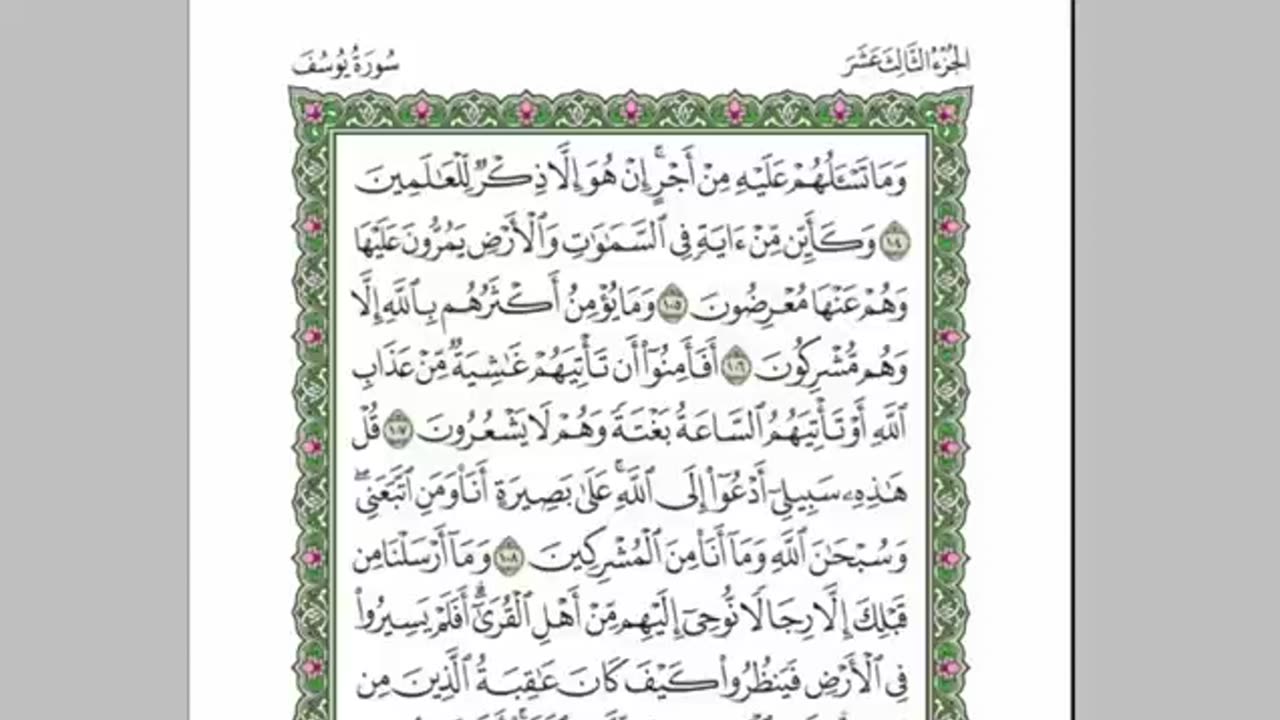 الجزء الثالث عشر
سورة يوسف
وَمَا تَسْـَٔلُهُمْ عَلَيْهِ مِنْ أَجْرٍۚ إِنْ هُوَ إِلَّا ذِكْرٌ لِّلْعَـٰلَمِينَ
١٠٤ وَكَأَيِّن مِّنْ ءَايَةٍ فِى ٱلسَّمَـٰوَٰتِ وَٱلْأَرْضِ يَمُرُّونَ عَلَيْهَا
وَهُمْ عَنْهَا مُعْرِضُونَ ١٠٥ وَمَا يُؤْمِنُ أَكْثَرُهُم بِٱللَّهِ إِلَّا
وَهُم مُّشْرِكُونَ ١٠٦ أَفَأَمِنُوٓا۟ أَن تَأْتِيَهُمْ غَـٰشِيَةٌ مِّنْ عَذَابِ
ٱللَّهِ أَوْ تَأْتِيَهُمُ ٱلسَّاعَةُ بَغْتَةً وَهُمْ لَا يَشْعُرُونَ ١٠٧ قُلْ
هَـٰذِهِۦ سَبِيلِىٓ أَدْعُوٓا۟ إِلَى ٱللَّهِۚ عَلَىٰ بَصِيرَةٍ أَنَا۠ وَمَنِ ٱتَّبَعَنِىۖ
وَسُبْحَـٰنَ ٱللَّهِ وَمَآ أَنَا۠ مِنَ ٱلْمُشْرِكِينَ ١٠٨ وَمَآ أَرْسَلْنَا مِن
قَبْلِكَ إِلَّا رِجَالًا نُّوحِىٓ إِلَيْهِم مِّنْ أَهْلِ ٱلْقُرَىٰٓۗ أَفَلَمْ يَسِيرُوا۟
فِى ٱلْأَرْضِ فَيَنظُرُوا۟ كَيْفَ كَانَ عَـٰقِبَةُ ٱلَّذِينَ مِن